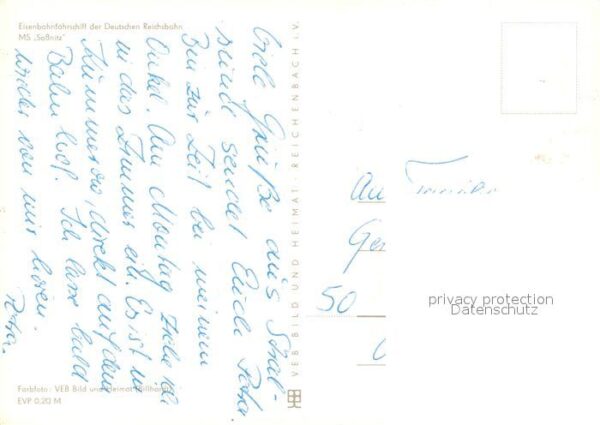 Eisenbahnfährschiff der Deutschen Reichsbahn
MS „Saßnitz"
Viele Grüße aus Stral-
sund sendet Euch Petra
Bin zur Zeit bei meinem
Onkel. Am Montag ziehe ich
in das Zimmer ein. Es ist in
direkt auf dem
Bahnhof. Ich lasse bald
wieder von mir hören.
Petra.
Farbfoto: VEB Bild und Heimat
EVP 0,20 M
VEB BILD UND HEIMAT REICHENBACH i. V.
An
50
privacy protection
Datenschutz